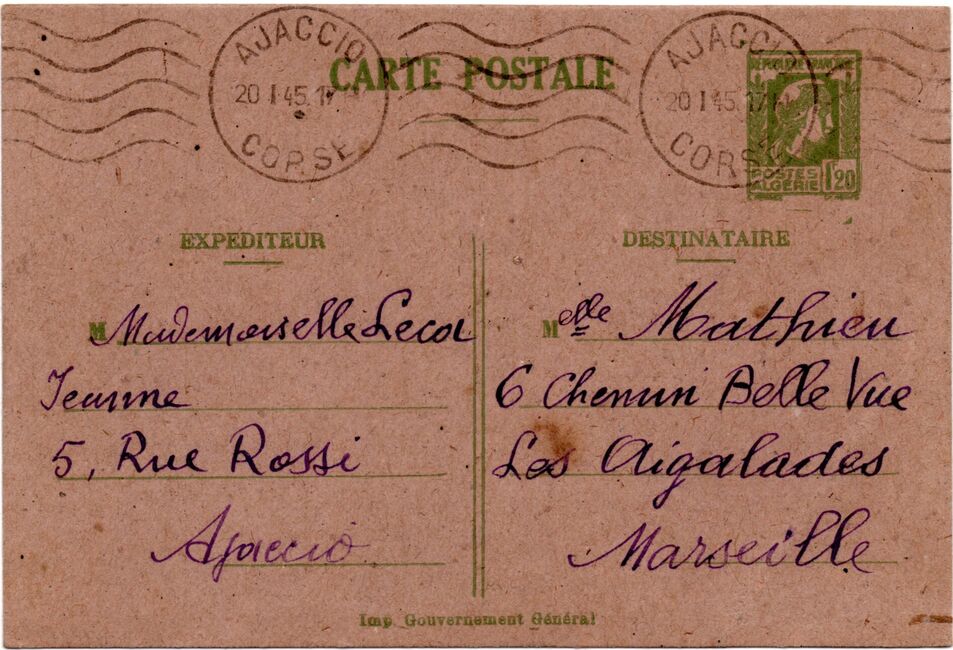 AJACCIO
20 I 45. 17
CORSE
CARTE POSTALE
AJACCIO
20 I 45. 17
CORSE
POSTES
ALGERIE
1F20
EXPEDITEUR
M Mademoiselle Lecoz
Jeanne
5, Rue Rossi
Ajaccio
DESTINATAIRE
Melle Mathieu
6 Chemin Belle Vue
Les Aigalades
Marseille
Imp Gouvernement Général